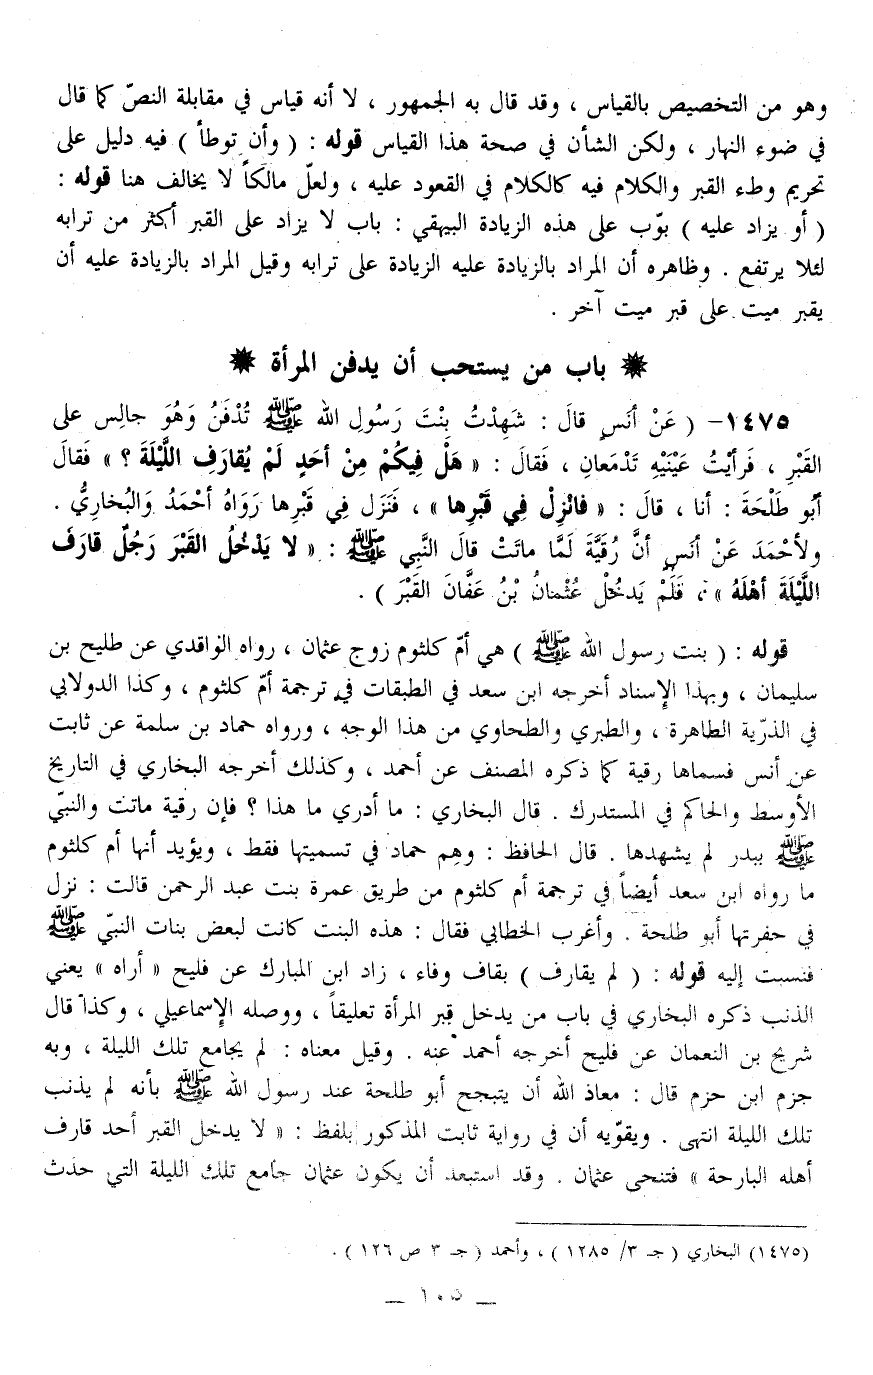 وهو من التخصيص بالقياس ، وقد قال به الجمهور ، لا أنه قياس في مقابلة النصّ كما قال
في ضوء النهار ، ولكن الشأن في صحة هذا القياس قوله : ( وأن توطأ ) فيه دليل على
تحريم وطء القبر والكلام فيه كالكلام في القعود عليه ، ولعلّ مالكاً لا يخالف هنا قوله :
( أو يزاد عليه ) بوّب على هذه الزيادة البيهقي : باب لا يزاد على القبر أكثر من ترابه
لئلا يرتفع . وظاهره أن المراد بالزيادة عليه الزيادة على ترابه وقيل المراد بالزيادة عليه أن
يقبر ميت على قبر ميت آخر .
✸ باب من يستحب أن يدفن المرأة ✸
١٤٧٥- ( عَنْ أَنَسٍ قالَ : شَهِدْتُ بِنْتَ رَسُولِ الله ﷺ تُدْفَنُ وَهُوَ جالِس على
القَبْرِ ، فَرأيْتُ عَيْنَيْهِ تَدْمَعانِ ، فَقالَ : « هَلْ فِيكُمْ مِنْ أحَدٍ لَمْ يُقارِفِ اللَّيْلَةَ ؟ » فَقالَ
أبُو طَلْحَةَ : أنا ، قالَ : « فانْزِلْ فِي قَبْرِها » ، فَنَزَل فِي قَبْرِها رَوَاهُ أحْمَدُ وَالبُخارِيُّ .
ولأحْمَدَ عَنْ أنَسٍ أنَّ رُقَيَّةَ لَمَّا ماتَتْ قالَ النَّبي ﷺ : « لا يَدْخُلُ القَبْرَ رَجُلٌ قارَفَ
اللَّيْلَةَ أهْلَهُ » ، فَلَمْ يَدخُلْ عُثْمانُ بْنُ عَفَّانَ القَبْرَ ) .
قوله : ( بنت رسول الله ﷺ ) هي أمّ كلثوم زوج عثمان ، رواه الواقدي عن طليح بن
سليمان ، وبهذا الإسناد أخرجه ابن سعد في الطبقات في ترجمة أمّ كلثوم ، وكذا الدولابي
في الذرّية الطاهرة ، والطبري والطحاوي من هذا الوجه ، ورواه حماد بن سلمة عن ثابت
عن أنس فسماها رقية كما ذكره المصنف عن أحمد ، وكذلك أخرجه البخاري في التاريخ
الأوسط والحاكم في المستدرك . قال البخاري : ما أدري ما هذا ؟ فإن رقية ماتت والنبيّ
ﷺ ببدر لم يشهدها . قال الحافظ : وهِم حماد في تسميتها فقط ، ويؤيد أنها أم كلثوم
ما رواه ابن سعد أيضاً في ترجمة أم كلثوم من طريق عمرة بنت عبد الرحمن قالت : نزل
في حفرتها أبو طلحة . وأغرب الخطابي فقال : هذه البنت كانت لبعض بنات النبيّ ﷺ
فنسبت إليه قوله : ( لم يقارف ) بقاف وفاء ، زاد ابن المبارك عن فليح « أراه » يعني
الذنب ذكره البخاري في باب من يدخل قبر المرأة تعليقاً ، ووصله الإسماعيلي ، وكذا قال
شريح بن النعمان عن فليح أخرجه أحمد عنه . وقيل معناه : لم يجامع تلك الليلة ، وبه
جزم ابن حزم قال : معاذ الله أن يتبجح أبو طلحة عند رسول الله ﷺ بأنه لم يذنب
تلك الليلة انتهى . ويقوّيه أن في رواية ثابت المذكور بلفظ : « لا يدخل القبر أحد قارف
أهله البارحة » فتنحى عثمان . وقد استبعد أن يكون عثمان جامع تلك الليلة التي حدث
(١٤٧٥) البخاري ( جـ ٣/ ١٢٨٥ ) ، وأحمد ( جـ ٣ ص ١٢٦ ) .
_ ١٠٥ _